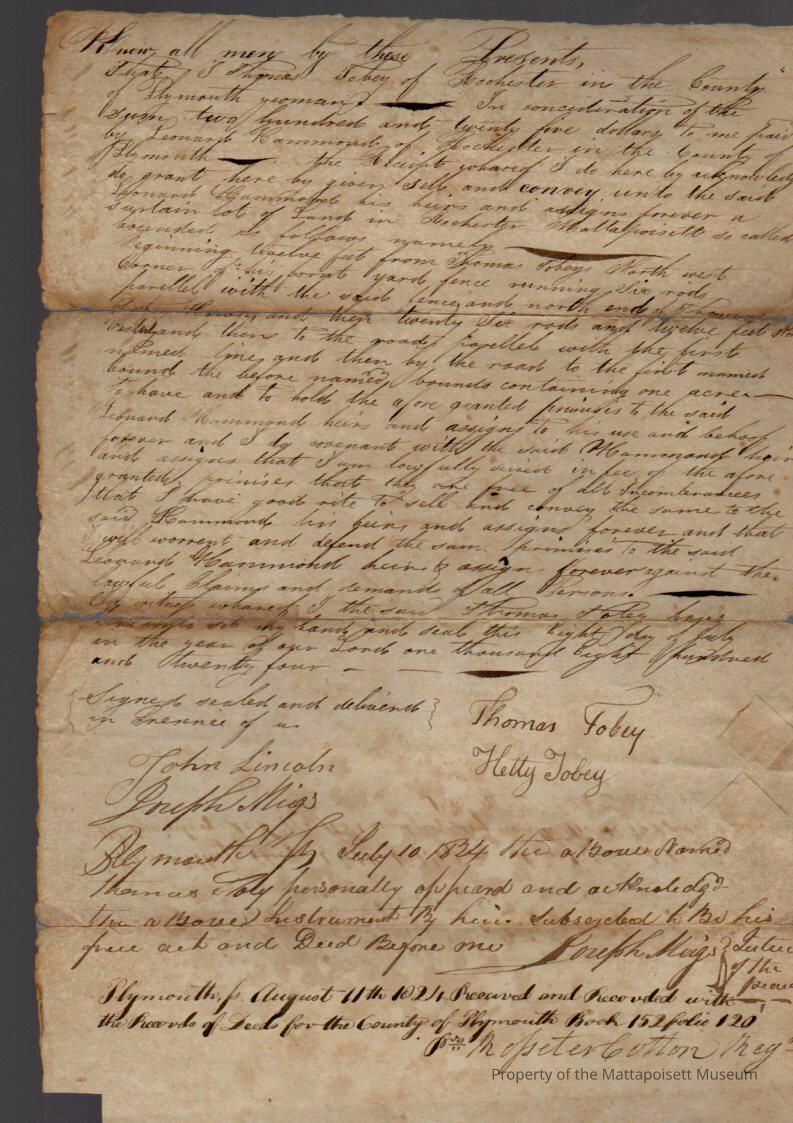 Know all men by these Presents,
That I Thomas Tobey of Rochester in the County
of Plymouth yeoman In concideration of the
sum two hundred and twenty five dollars to me paid
by Leonard Hammond of Rochester in the County of
Plymouth the Receipt whareof I do here by acknowledg
do grant here by given sell and convey unto the said
Leonard Hammond his heirs and assigns forever a
surtain lot of Land in Rochester Mattapoisett so called
bounded as follows namely
Beginning twelve feet from Thomas Tobeys North west
Corner of his front yard fence running Six rods
parellel with the said fence and north end of
and then twenty Six rods and twelve feet
and then to the road parellel with the first
named line and then by the road to the first named
bound the before named bounds containing one acre
To have and to hold the afore granted primises to the said
Leonard Hammond heirs and assigns to his use and behoof
forever and I do covenant with the said Hammond heirs
and assigns that I am lawfully seized in fee of the afore
granted primises that they are free of all Incumberances
that I have good rite to sell and convey the same to the
said Hammond his heirs and assigns forever and that
I will worrent and defend the same primises to the said
Leonard Hammond heirs & assigns forever against the
lawful Claims and demands of all Persons.
In witness whareof I the said Thomas Tobey have
set my hand and seal this Eight day of July
in the year of our Lord one thousand Eight Hundred
and twenty four
Signed sealed and delivered
in Presence of us
Thomas Tobey
Hetty Tobey
John Lincoln
Joseph Migs
Plymouth Ss July 10 1824 the above Named
thomas Toby personally appeard and acknoledgd
the above Instrument By him Subscrbed to Be his
free act and Deed Before me Joseph Migs Justice
of the
peace
Plymouth, ss. August 11th 1824 Received and Recorded with
the Records of Deeds for the County of Plymouth Book 152 folio 120
pr Rosseter Cotton Regr
Property of the Mattapoisett Museum